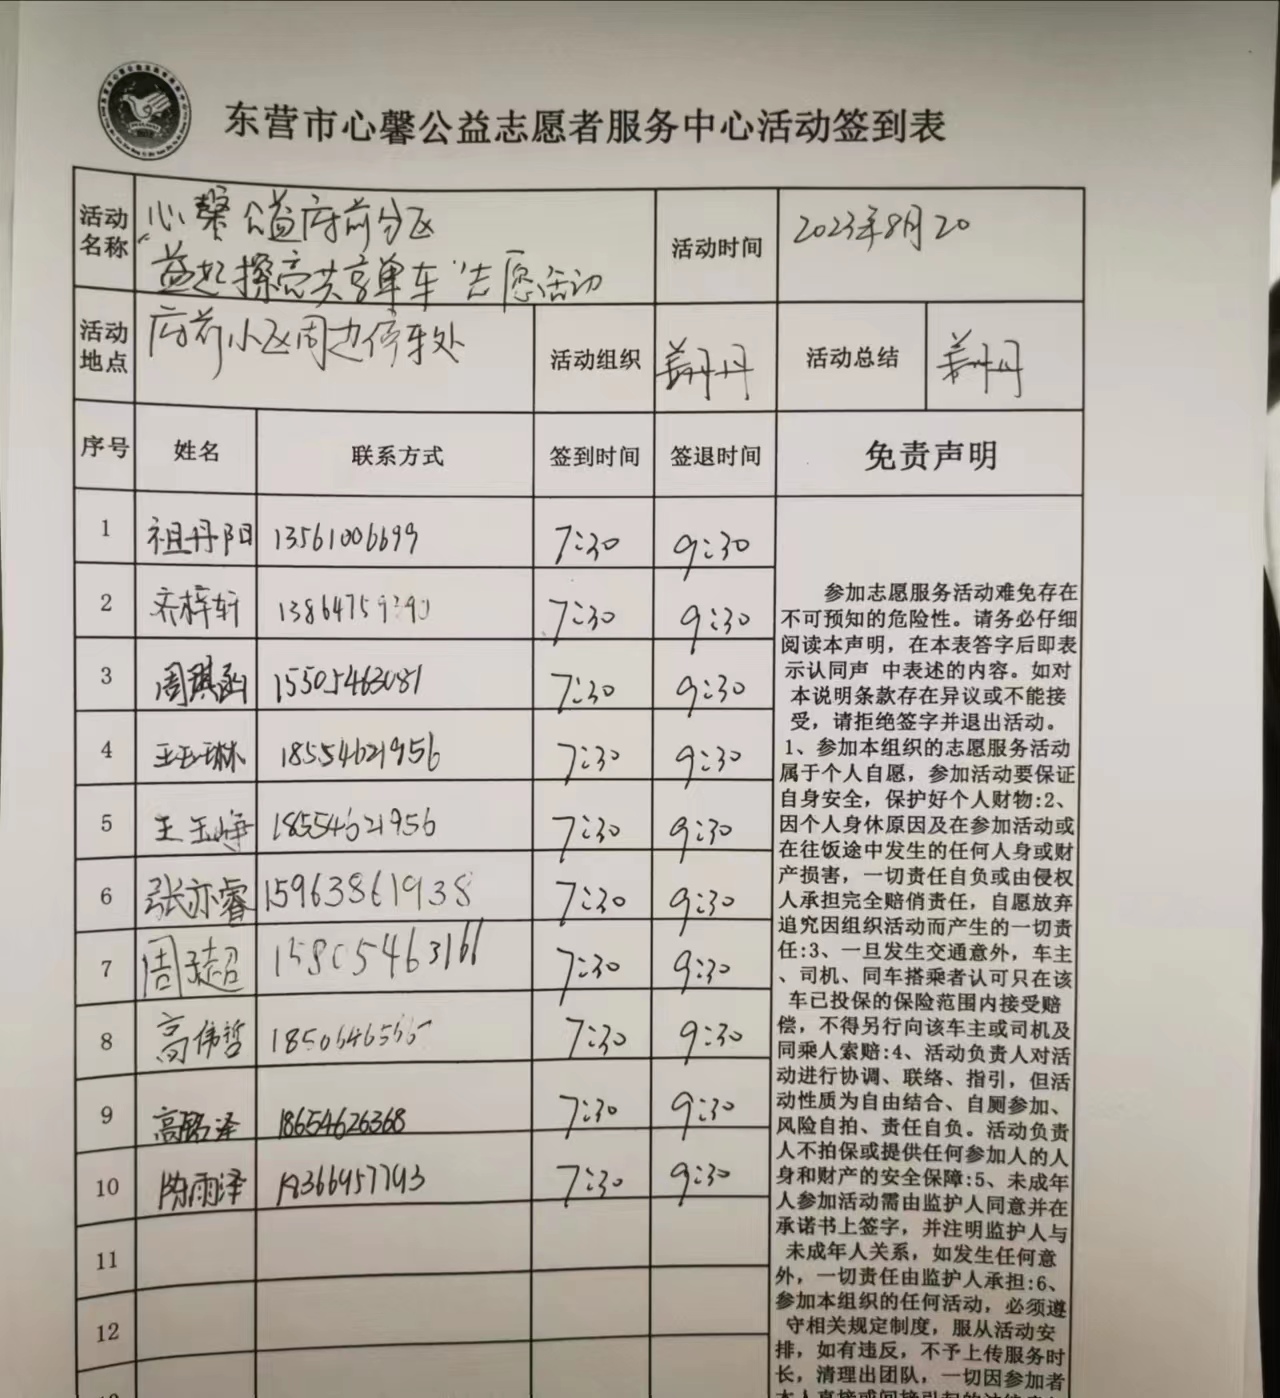 东营市心馨公益志愿者服务中心活动签到表
活动名称
心馨公益府前分区
“益起擦亮共享单车”志愿活动
活动时间
2023年8月20
活动地点
府前小区周边停车处
活动组织
姜丹丹
活动总结
姜丹丹
序号 姓名 联系方式 签到时间 签退时间 免责声明
1 祖丹阳 13561006699 7:30 9:30
2 乔梓轩 7:30 9:30
3 周琪函 15505463081 7:30 9:30
4 王玉琳 18554621956 7:30 9:30
5 王玉峥 18554621956 7:30 9:30
6 张亦睿 15963861938 7:30 9:30
7 周 15805463161 7:30 9:30
8 高伟哲 7:30 9:30
9 高铭泽 18654626368 7:30 9:30
10 陈雨泽 7:30 9:30
11
12
参加志愿服务活动难免存在
不可预知的危险性。请务必仔细
阅读本声明，在本表答字后即表
示认同声 中表述的内容。如对
本说明条款存在异议或不能接
受，请拒绝签字并退出活动。
1、参加本组织的志愿服务活动
属于个人自愿，参加活动要保证
自身安全，保护好个人财物:2、
因个人身休原因及在参加活动或
在往饭途中发生的任何人身或财
产损害，一切责任自负或由侵权
人承担完全赔俏责任，自愿放弃
追究因组织活动而产生的一切责
任:3、一旦发生交通意外，车主
、司机、同车搭乘者认可只在该
车已投保的保险范围内接受赔
偿，不得另行向该车主或司机及
同乘人索赔:4、活动负责人对活
动进行协调、联络、指引，但活
动性质为自由结合、自厕参加、
风险自拍、责任自负。活动负责
人不拍保或提供任何参加人的人
身和财产的安全保障:5、未成年
人参加活动需由监护人同意并在
承诺书上签字，并注明监护人与
未成年人关系，如发生任何意
外，一切责任由监护人承担:6、
参加本组织的任何活动，必须遵
守相关规定制度，服从活动安
排，如有违反，不予上传服务时
长，清理出团队，一切因参加者